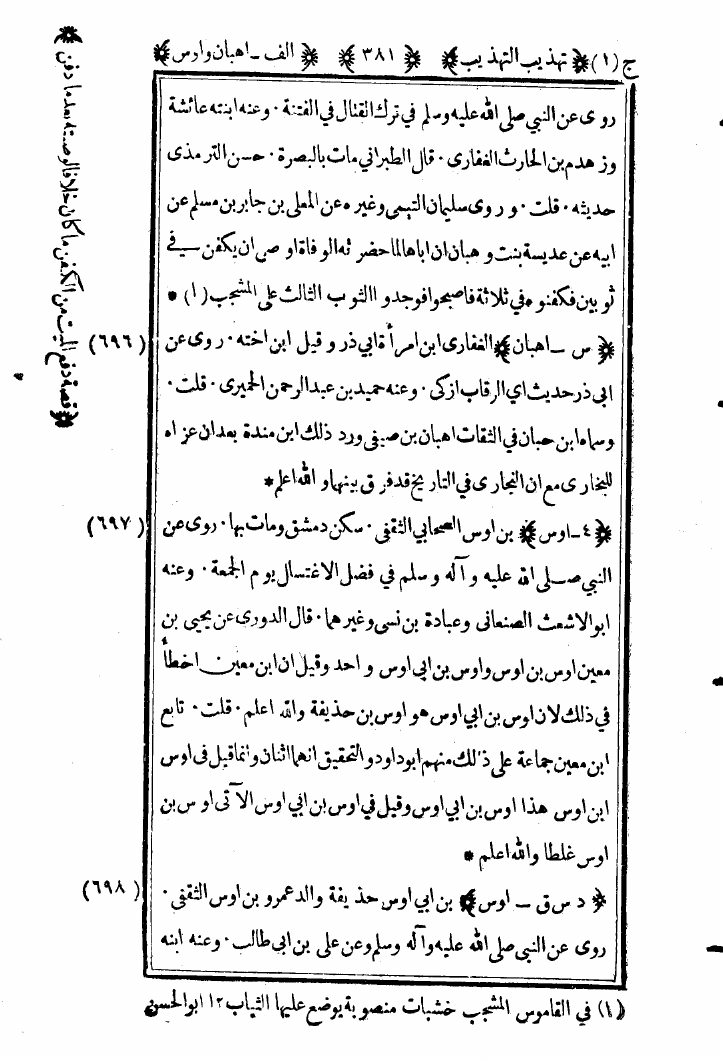 ج (١) ﴿ تهذيب التهذيب ﴾ ﴿ ٣٨١ ﴾ ﴿ الف ـ اهبان واوس ﴾
روى عن النبي صلى الله عليه وسلم في ترك القتال في الفتنة · وعنه ابنته عائشة
وزهدم بن الحارث الغفارى · قال الطبراني مات بالبصرة · حسن الترمذى
حديثه · قلت · وروى سليمان التيمى وغيره عن المعلى بن جابر بن مسلم عن
ابيه عن عديسة بنت وهبان ان اباها لما حضرته الوفاة اوصى ان يكفن في
ثوبين فكفنوه في ثلاثة فاصبحوا فوجدوا الثوب الثالث على المشجب (١) *
﴿ س ـ اهبان ﴾ الغفارى ابن امرأة ابي ذر وقيل ابن اخته · روى عن
(٦٩٦)
ابي ذر حديث اي الرقاب ازكى · وعنه حميد بن عبد الرحمن الحميرى · قلت ·
وسماه ابن حبان في الثقات اهبان بن صيفى ورد ذلك ابن مندة بعد ان عزاه
للبخارى مع ان البخارى في التاريخ قد فرق بينهما والله اعلم *
﴿ ٤ ـ اوس ﴾ بن اوس الصحابي الثقفى · سكن دمشق ومات بها · روى عن
(٦٩٧)
النبي صلى الله عليه وآله وسلم في فضل الاغتسال يوم الجمعة · وعنه
ابو الاشعث الصنعانى وعبادة بن نسى وغيرهما · قال الدورى عن يحيى بن
معين اوس بن اوس واوس بن ابى اوس واحد وقيل ان ابن معين اخطأ
في ذلك لان اوس بن ابي اوس هو اوس بن حذيفة والله اعلم · قلت · تابع
ابن معين جماعة على ذلك منهم ابوداود والتحقيق انهما اثنان وانما قيل فى اوس
ابن اوس هذا اوس بن ابي اوس وقيل في اوس بن ابي اوس الآتى اوس بن
اوس غلطا والله اعلم *
﴿ د س ق ـ اوس ﴾ بن ابي اوس حذيفة والد عمرو بن اوس الثقفى ·
(٦٩٨)
روى عن النبي صلى الله عليه وآله وسلم وعن على بن ابي طالب · وعنه ابنه
(١) في القاموس المشجب خشبات منصوبة يوضع عليها الثياب ١٢ ابوالحسن
﴿ قصة دفع الميت من الكفن ما كان خلاف الوصيته بعد ما دفن ﴾